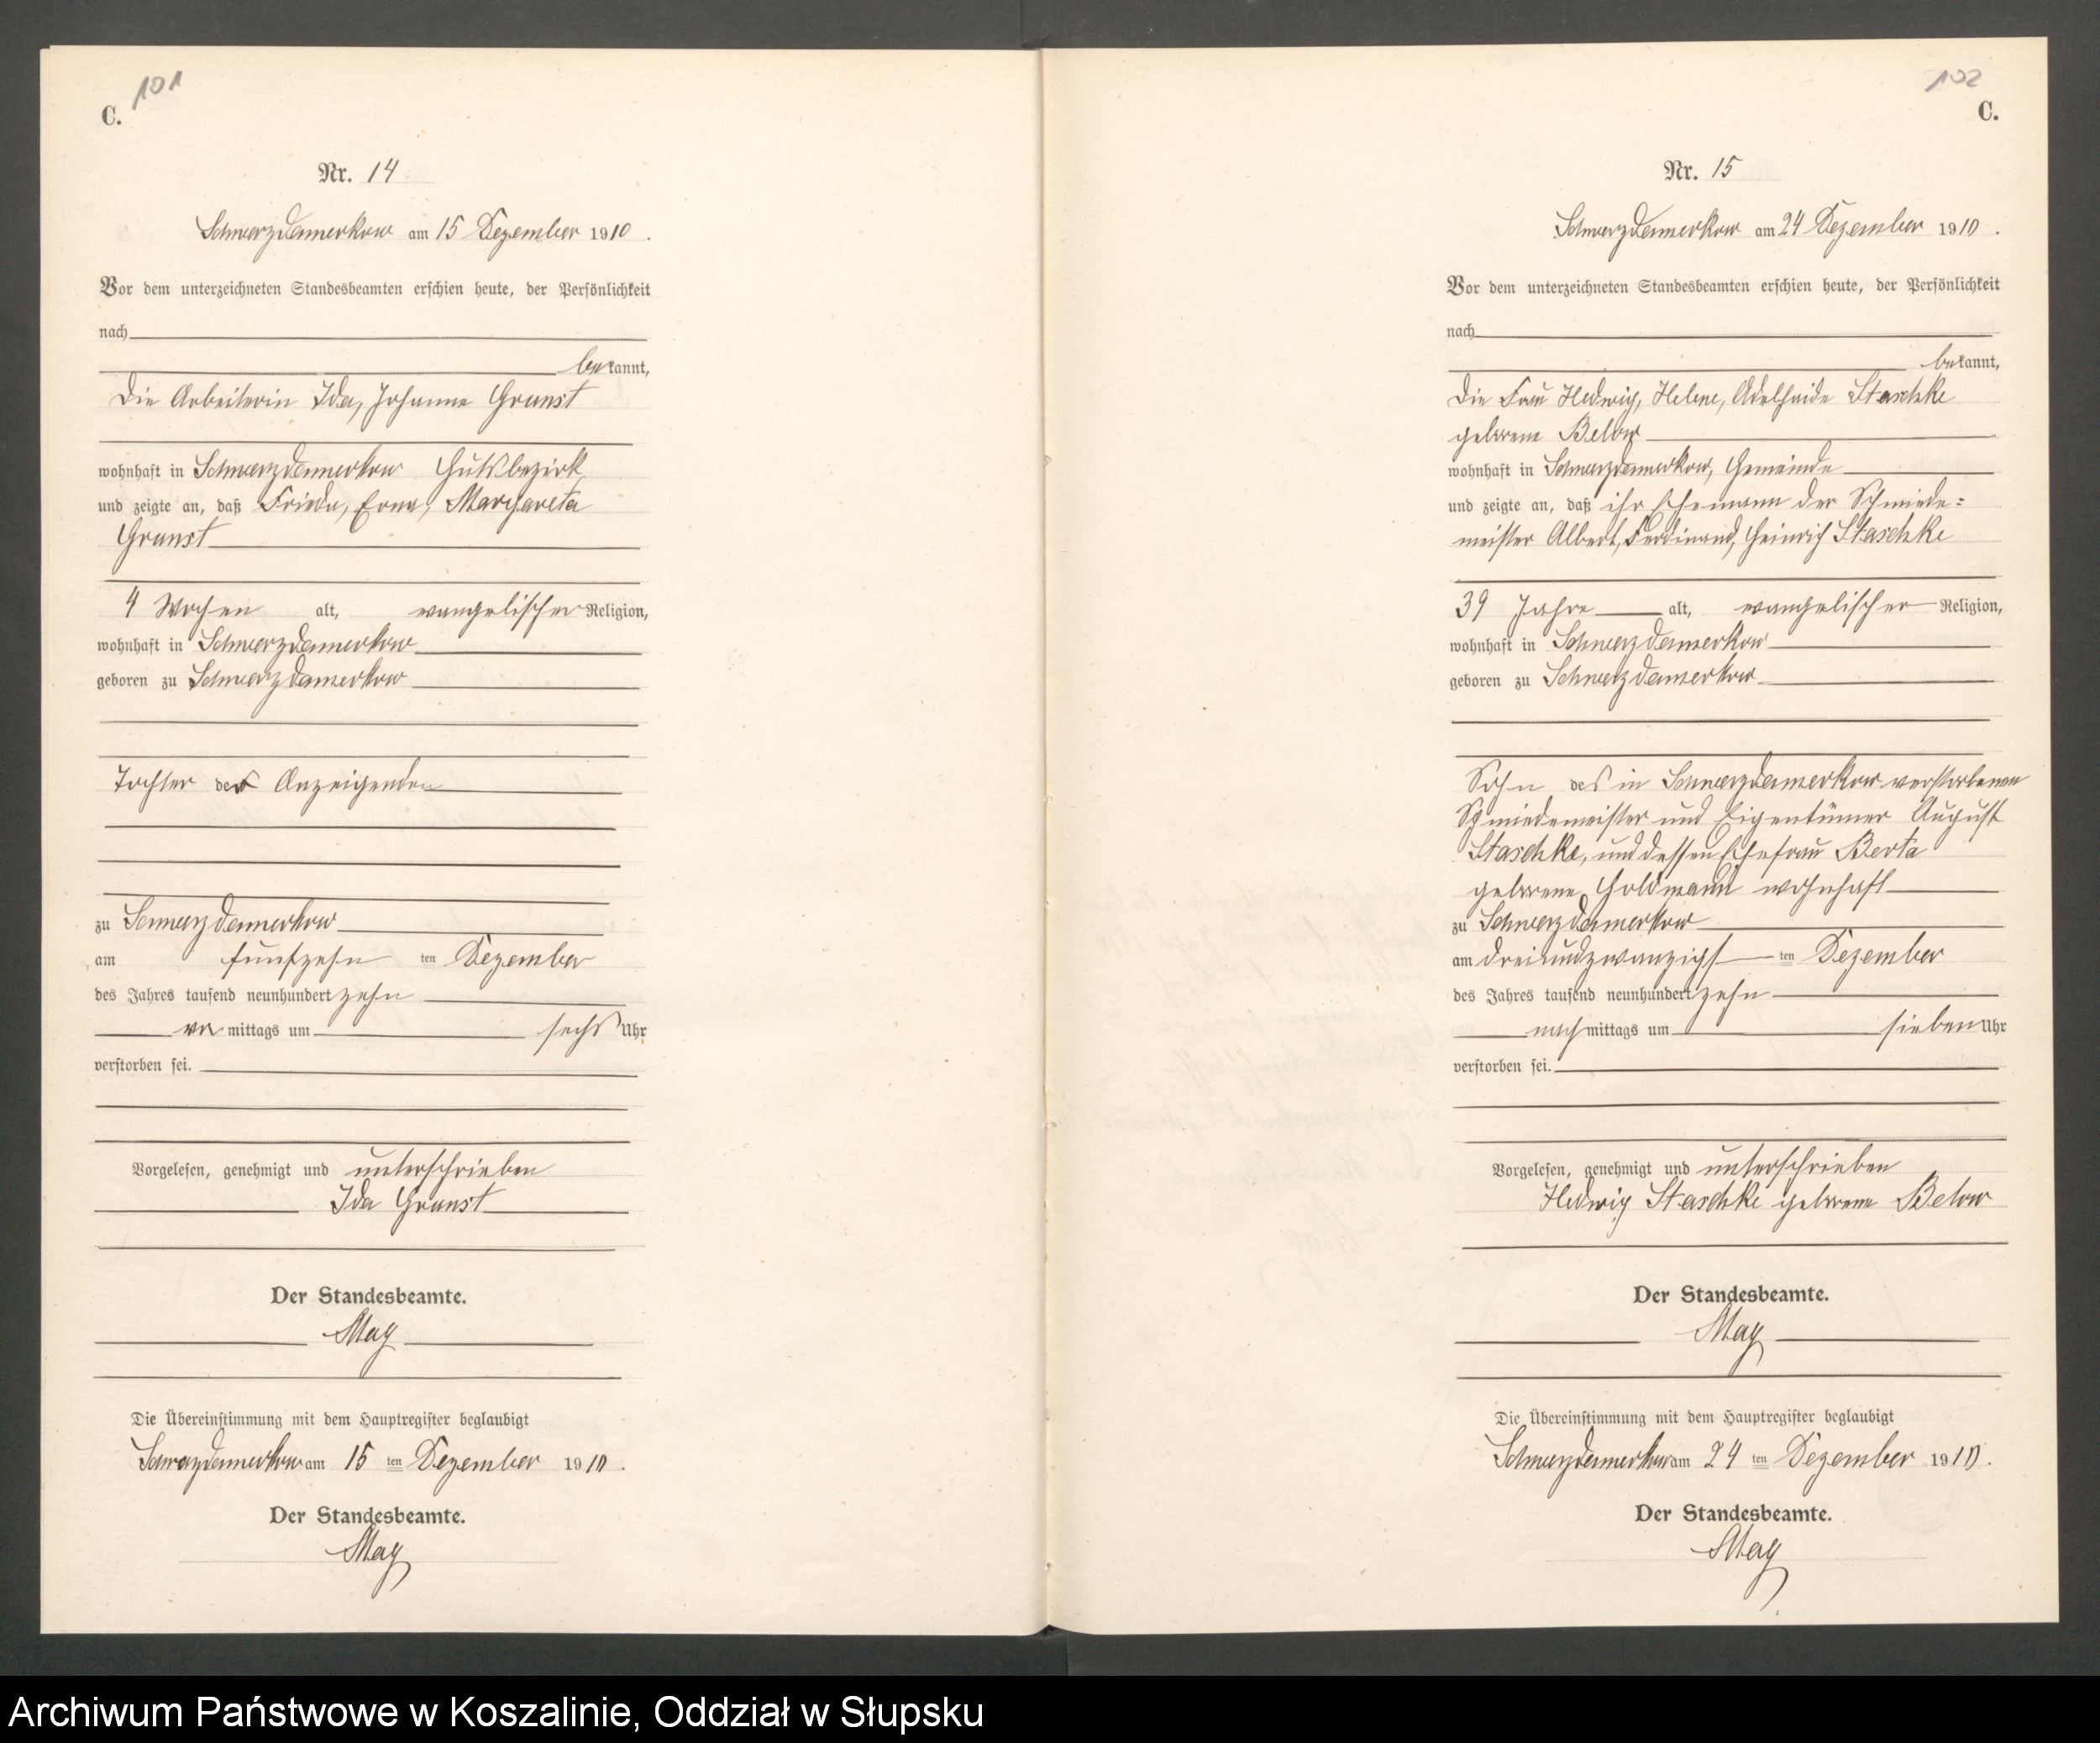 101
C.
Nr. 14
Schwarzdamerkow am 15 Dezember 1910.
Vor dem unterzeichneten Standesbeamten erschien heute, der Persönlichkeit
nach
bekannt,
die Arbeiterin Ida, Johanne Granst
wohnhaft in Schwarzdamerkow Gutsbezirk
und zeigte an, daß Frieda, Erna, Margareta
Granst
4 Wochen alt, evangelischer Religion,
wohnhaft in Schwarzdamerkow
geboren zu Schwarzdamerkow
Tochter der Anzeigenden
zu Schwarzdamerkow
am fünfzehn ten Dezember
des Jahres tausend neunhundert zehn
vor mittags um sechs Uhr
verstorben sei.
Vorgelesen, genehmigt und unterschrieben
Ida Granst
Der Standesbeamte.
May
Die Übereinstimmung mit dem Hauptregister beglaubigt
Schwarzdamerkow am 15 ten Dezember 1910.
Der Standesbeamte.
May
102
C.
Nr. 15
Schwarzdamerkow am 24 Dezember 1910.
Vor dem unterzeichneten Standesbeamten erschien heute, der Persönlichkeit
nach
bekannt,
die Frau Hedwig, Helene, Adelheide Staschke
geborene Below
wohnhaft in Schwarzdamerkow, Gemeinde
und zeigte an, daß ihr Ehemann der Schmiede=
meister Albert, Ferdinand, Heinrich Staschke
39 Jahre alt, evangelischer Religion,
wohnhaft in Schwarzdamerkow
geboren zu Schwarzdamerkow
Sohn des in Schwarzdamerkow verstorbenen
Schmiedemeister und Eigentümer August
Staschke, und dessen Ehefrau Berta
geborene Goldmann wohnhaft
zu Schwarzdamerkow
am dreiundzwanzigst ten Dezember
des Jahres tausend neunhundert zehn
nach mittags um sieben Uhr
verstorben sei.
Vorgelesen, genehmigt und unterschrieben
Hedwig Staschke geborene Below
Der Standesbeamte.
May
Die Übereinstimmung mit dem Hauptregister beglaubigt
Schwarzdamerkow am 24 ten Dezember 1910.
Der Standesbeamte.
May
Archiwum Państwowe w Koszalinie, Oddział w Słupsku